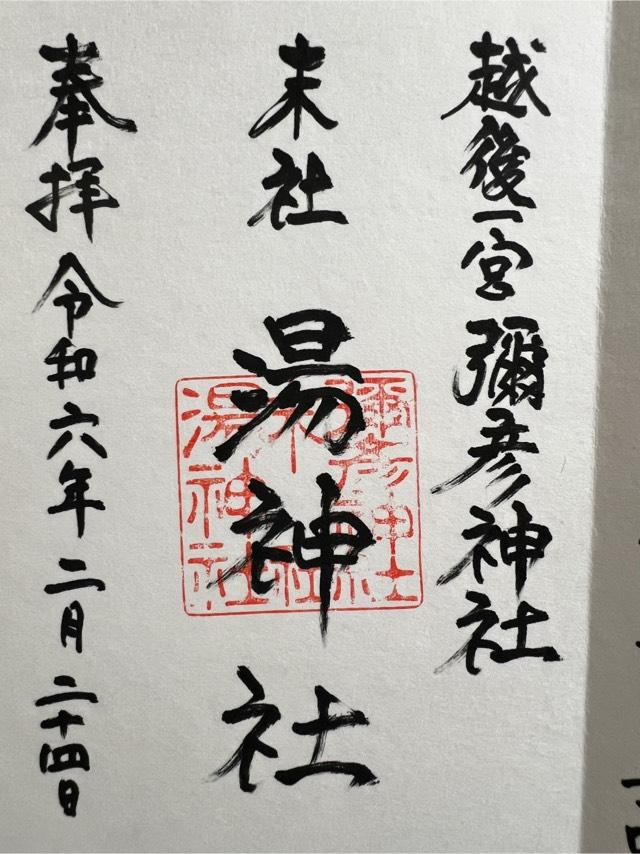 越後一宮彌彦神社
末社
湯神社
奉拝令和六年二月二十四日
彌彦神社
末社
湯神社